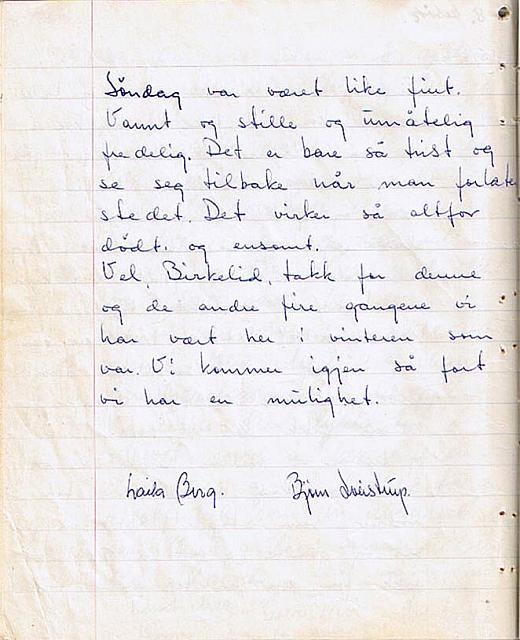 Söndag var været like fint.
Varmt og stille og umåtelig
fredelig. Det er bare så trist og
se seg tilbake når man forlater
stedet. Det virker så altfor
dödt. og ensomt.
Vel, Birkelid, takk for denne
og de andre fire gangene vi
har vært her i vinteren som
var. Vi kommer igjen så fort
vi har en mulighet.
Laila Berg. Björn